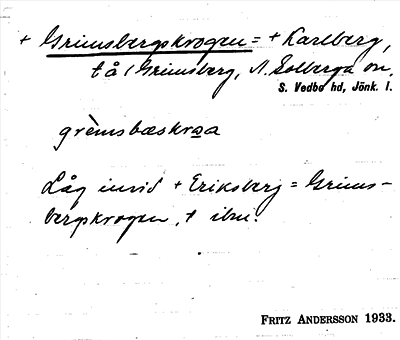 + Grimsbergskrogen = + Karlberg,
t å / Grimsberg, N. Solberga sn,
S. Vedbo hd, Jönk. l.
grèmsbæskroa
Låg invid + Eriksberg = Grims-
bergskrogen, + ibm.
FRITZ ANDERSSON 1933.